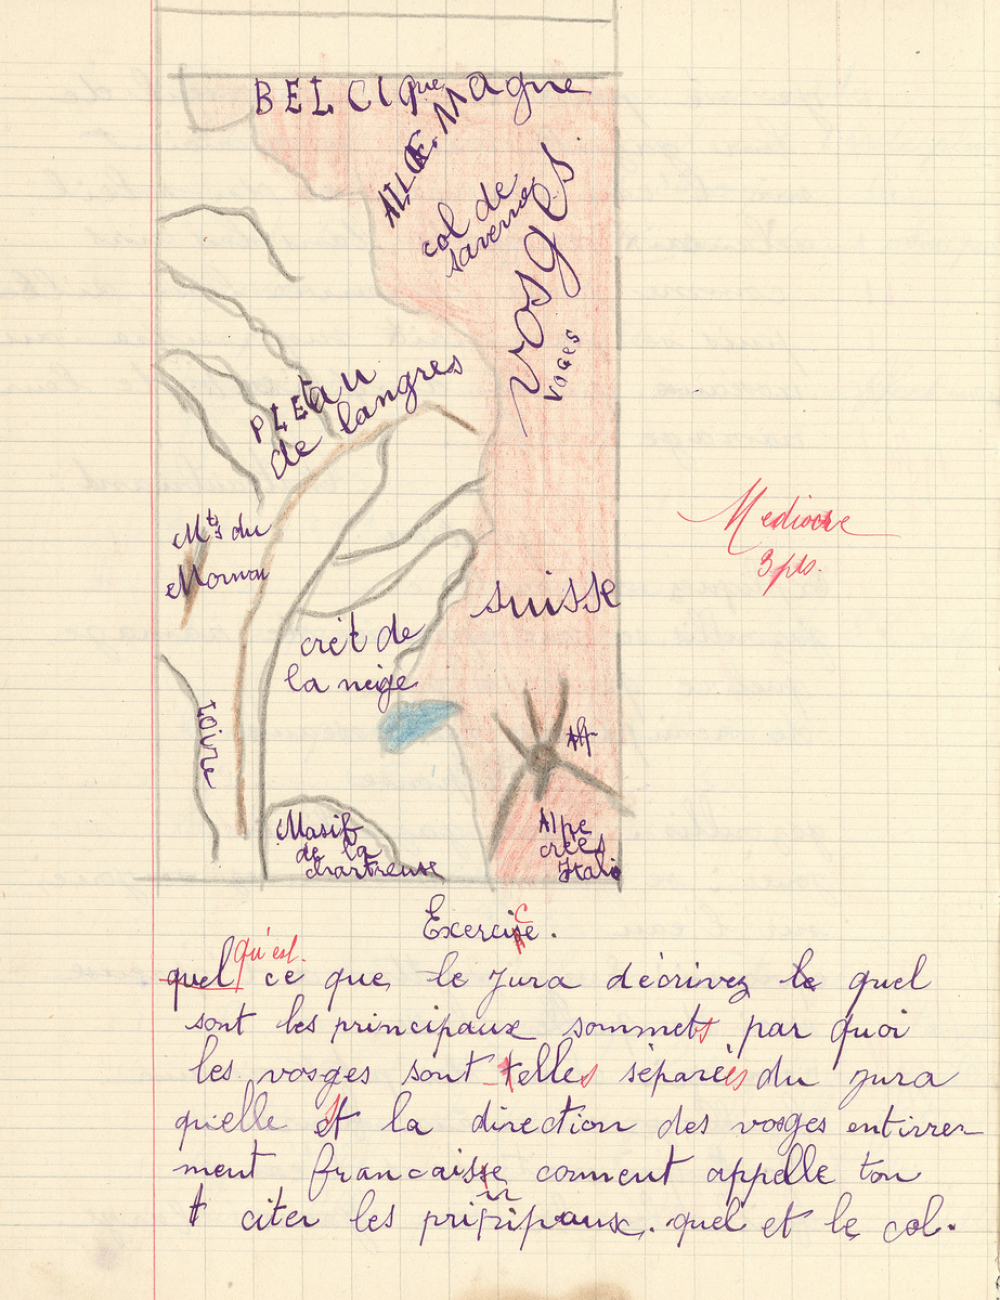 BELGIque
ALLEMagne
col de
saverne
Vosges
Voges
PLEtau
de langres
Mts du
Morvan
crêt de
la neige
suisse
Loire
Alp
Masif
de la
chartreuse
Alpe
crées
Itali
Mediocre
3 pts.
Exercise. c
quel qu'est ce que le Jura décrivez le quel
sont les principaux sommets par quoi
les vosges sont-telles séparées du jura
quelle est la direction des vosges entirre-
ment francaisse comment appelle ton
t citer les pripipaux. quel et le col.